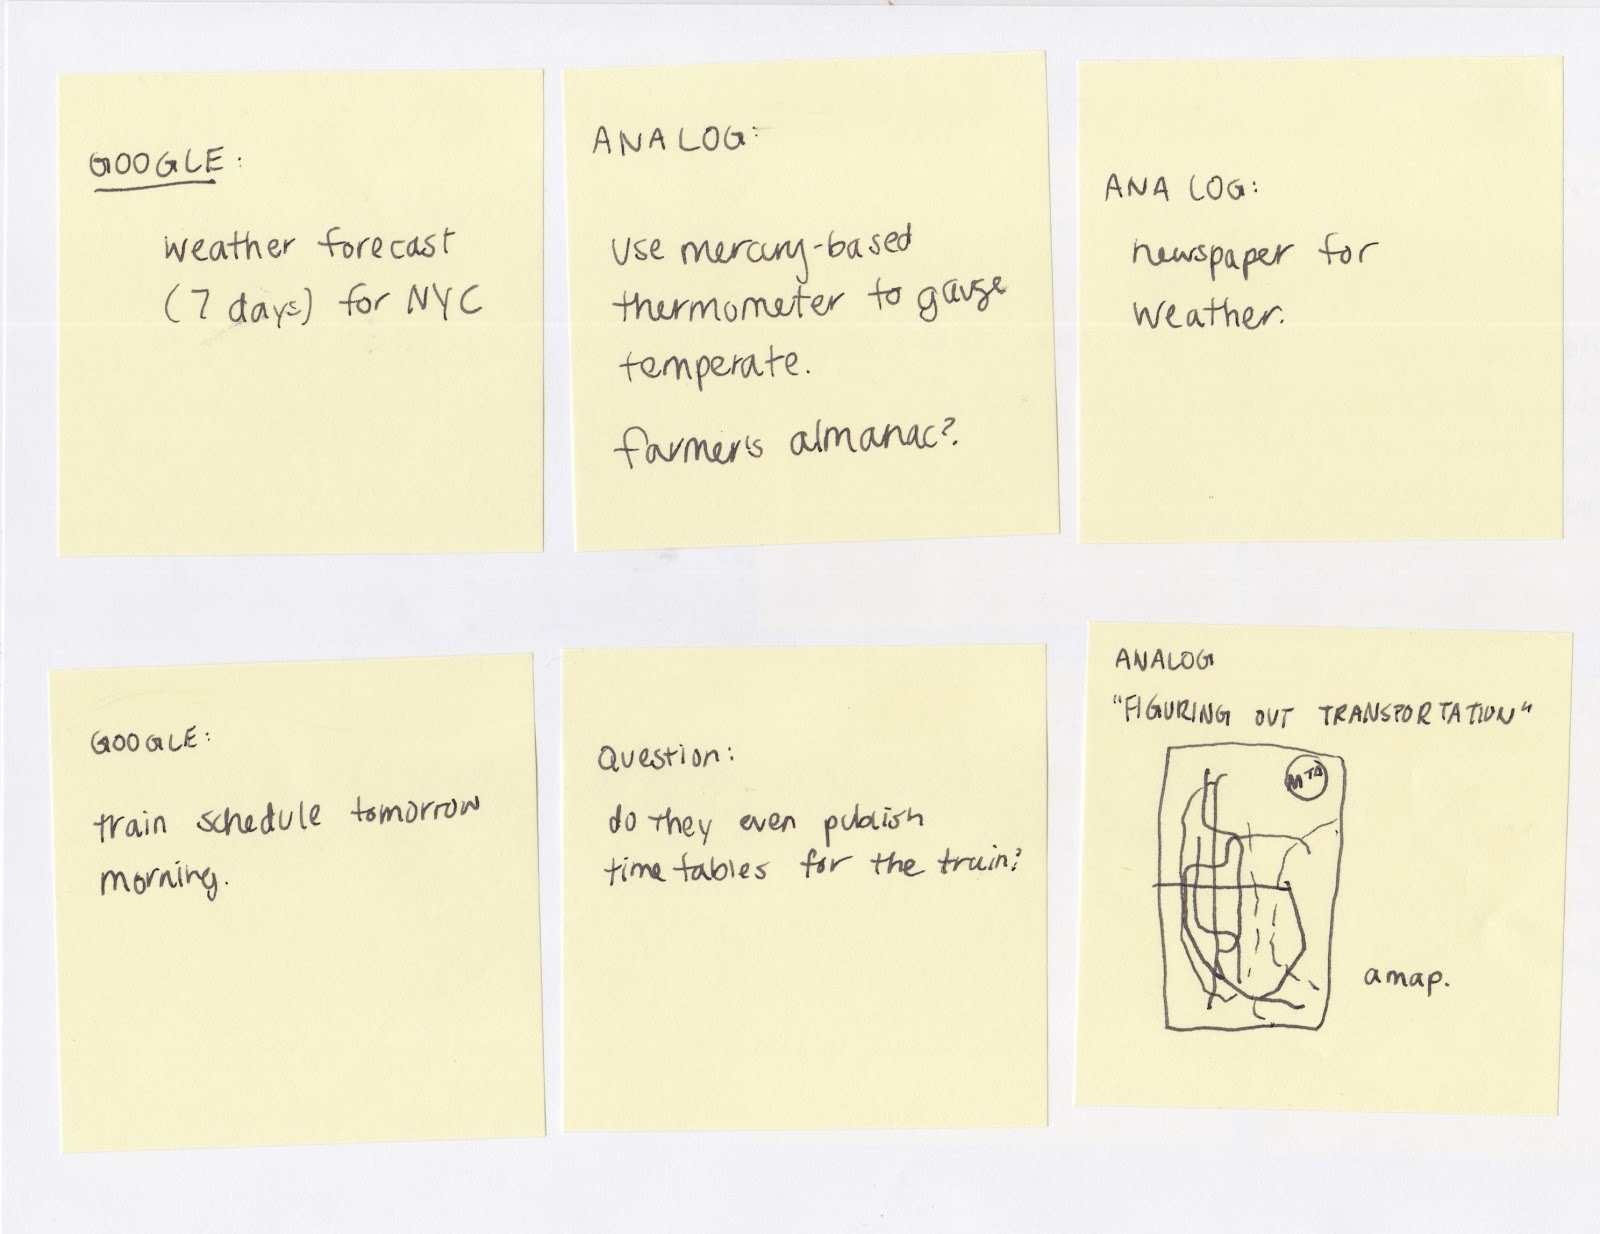 GOOGLE:
weather forecast
(7 days) for NYC
ANALOG:
use mercury-based
thermometer to gauge
temperate.
farmer's almanac?
ANALOG:
newspaper for
weather.
GOOGLE:
train schedule tomorrow
morning.
Question:
do they even publish
time tables for the train?
ANALOG
"FIGURING OUT TRANSPORTATION"
MTA
a map.